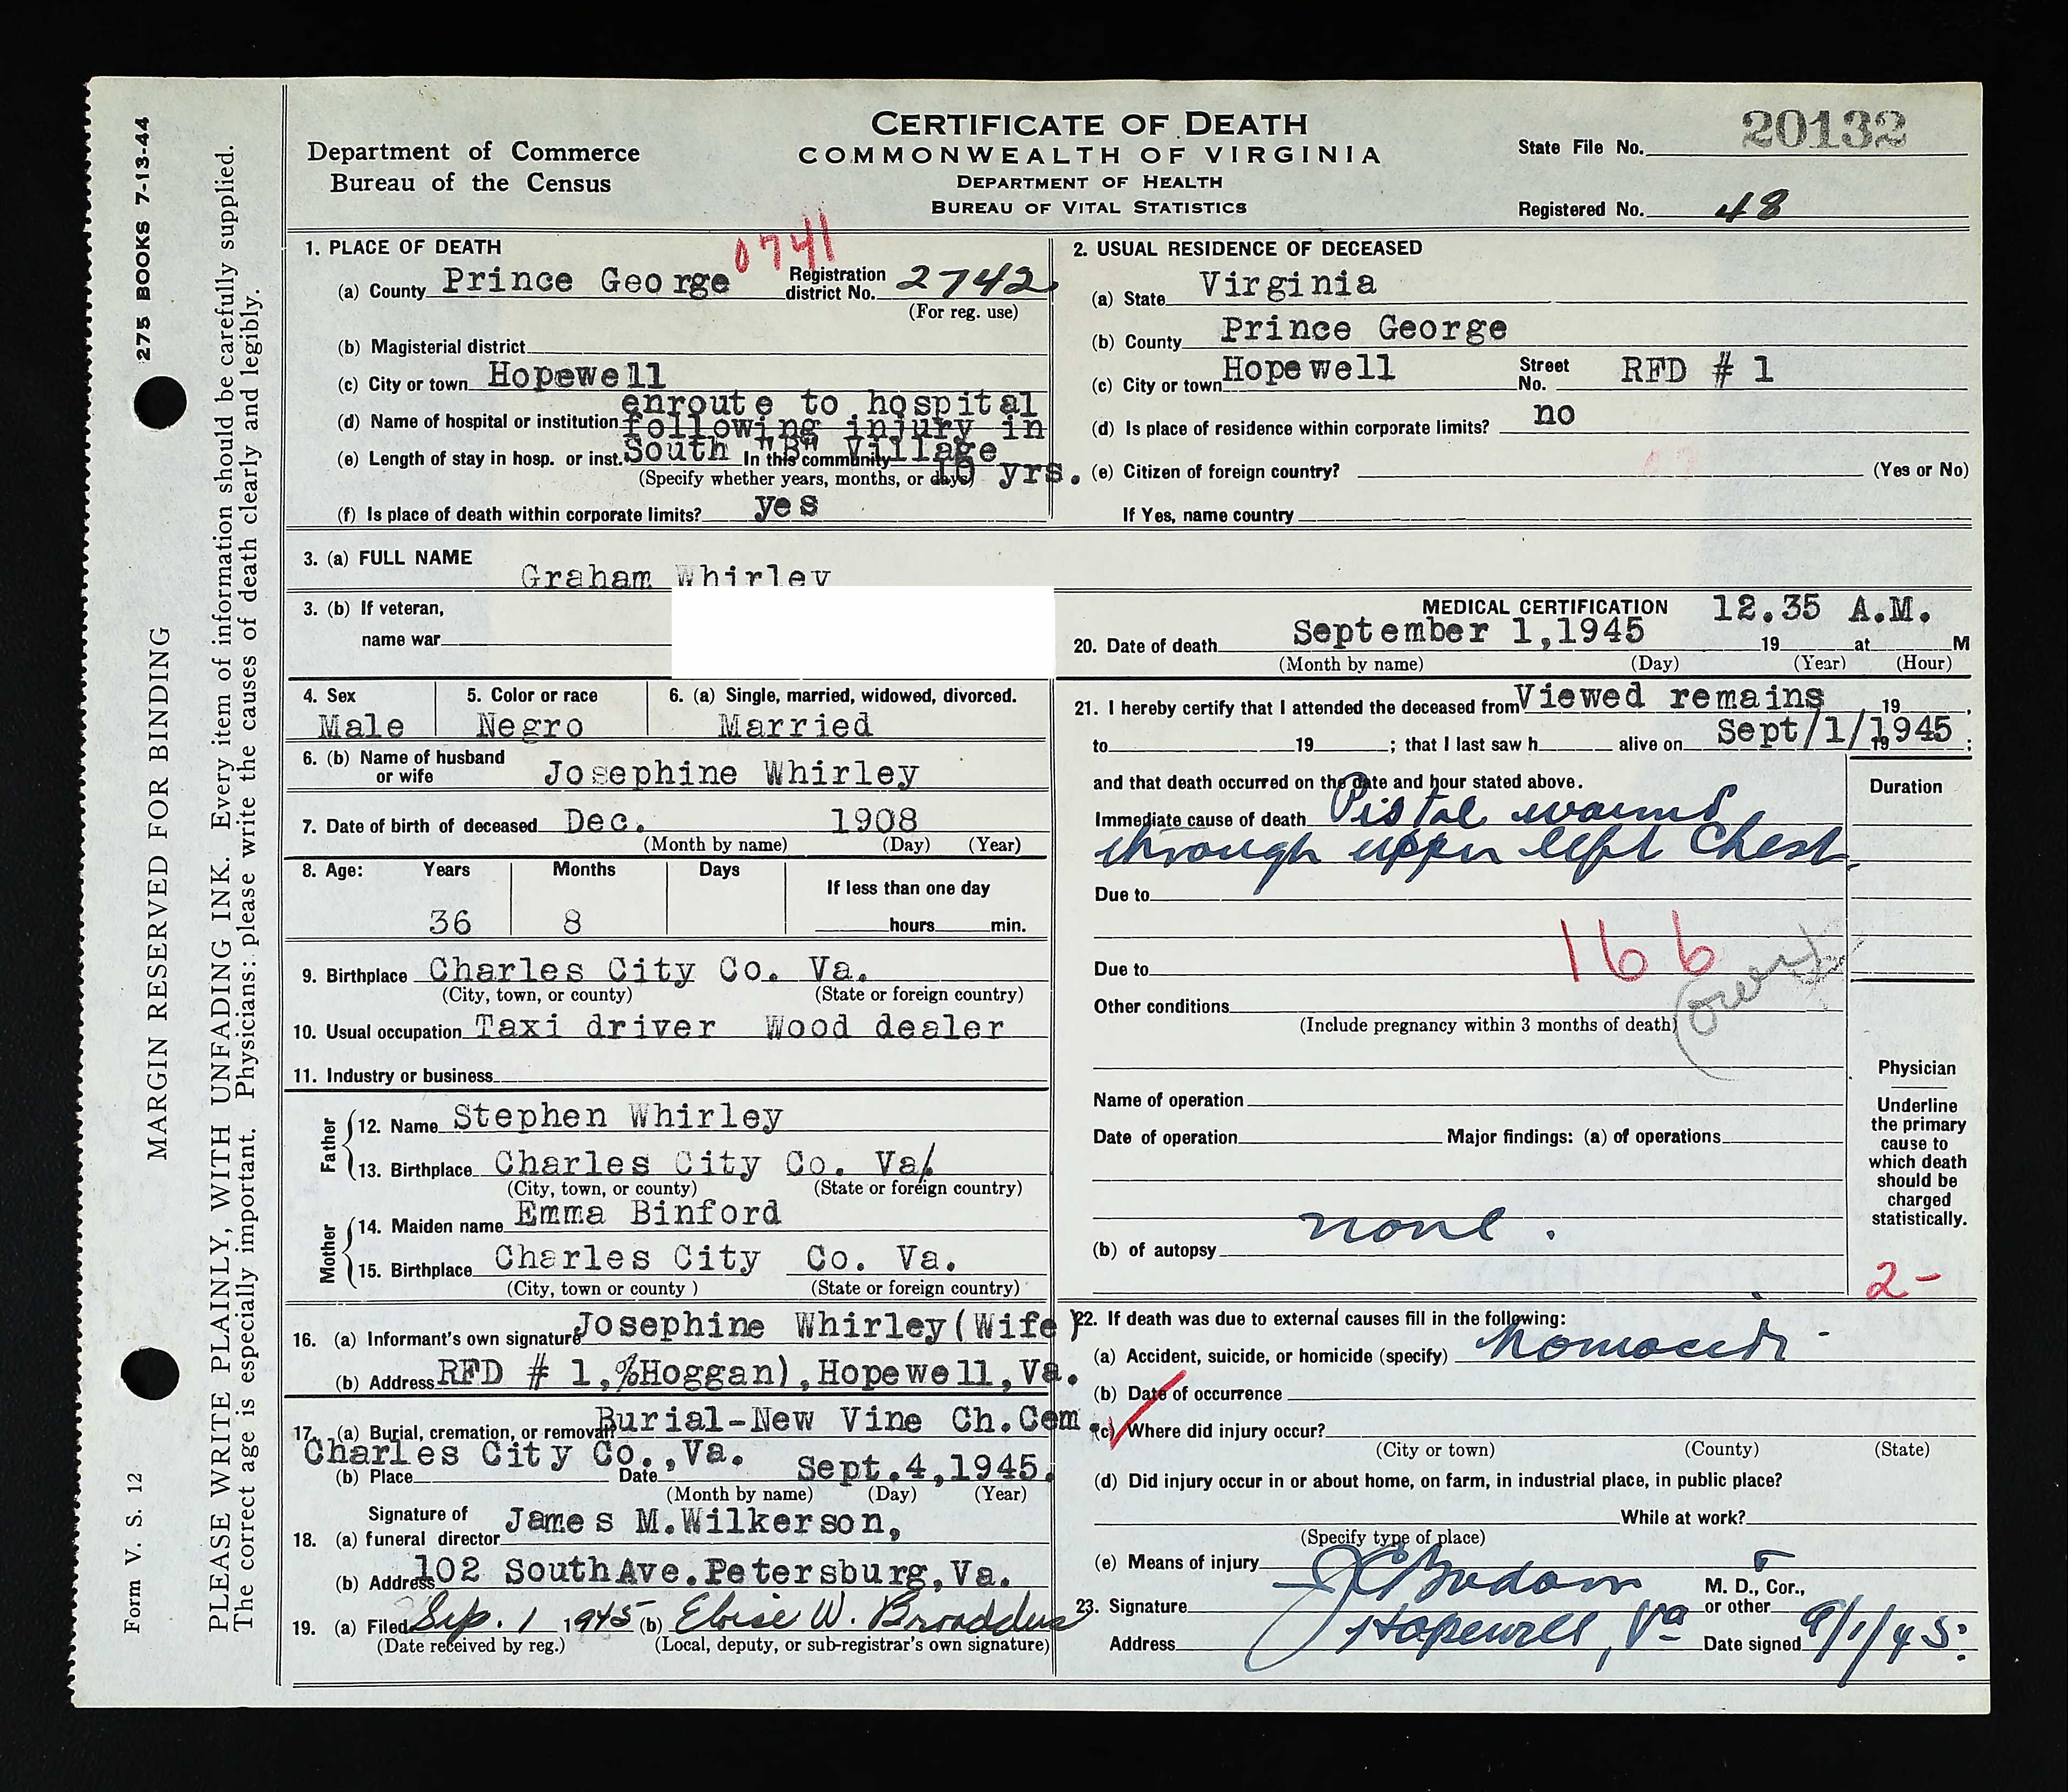 275 BOOKS 7-13-44
MARGIN RESERVED FOR BINDING
Form V. S. 12
PLEASE WRITE PLAINLY, WITH UNFADING INK. Every item of information should be carefully supplied.
The correct age is especially important. Physicians: please write the causes of death clearly and legibly.
Department of Commerce
Bureau of the Census
CERTIFICATE OF DEATH
COMMONWEALTH OF VIRGINIA
DEPARTMENT OF HEALTH
BUREAU OF VITAL STATISTICS
State File No. 20132
Registered No. 48
1. PLACE OF DEATH
0741
(a) County Prince George Registration district No. 2742
(For reg. use)
(b) Magisterial district
(c) City or town Hopewell
enroute to hospital
(d) Name of hospital or institution following injury in
(e) Length of stay in hosp. or inst. South "B" Village In this community 10 yrs.
(Specify whether years, months, or days)
(f) Is place of death within corporate limits? yes
2. USUAL RESIDENCE OF DECEASED
(a) State Virginia
(b) County Prince George
(c) City or town Hopewell Street No. RFD # 1
(d) Is place of residence within corporate limits? no
(e) Citizen of foreign country? (Yes or No)
If Yes, name country
3. (a) FULL NAME Graham Whirley
3. (b) If veteran,
name war
4. Sex Male
5. Color or race Negro
6. (a) Single, married, widowed, divorced. Married
6. (b) Name of husband or wife Josephine Whirley
7. Date of birth of deceased Dec. 1908
(Month by name) (Day) (Year)
8. Age: Years Months Days If less than one day
36 8 hours min.
9. Birthplace Charles City Co. Va.
(City, town, or county) (State or foreign country)
10. Usual occupation Taxi driver Wood dealer
11. Industry or business
Father
12. Name Stephen Whirley
13. Birthplace Charles City Co. Va.
(City, town, or county) (State or foreign country)
Mother
14. Maiden name Emma Binford
15. Birthplace Charles City Co. Va.
(City, town or county ) (State or foreign country)
16. (a) Informant's own signature Josephine Whirley(Wife)
(b) Address RFD # 1,%Hoggan),Hopewell,Va.
17. (a) Burial, cremation, or removal? Burial-New Vine Ch.Cem.
Charles City Co.,Va.
(b) Place Date Sept.4,1945.
(Month by name) (Day) (Year)
18. (a) Signature of funeral director James M.Wilkerson,
(b) Address 102 South Ave.Petersburg,Va.
19. (a) Filed Sep. 1 1945 (b) Eloise W. Broaddus
(Date received by reg.) (Local, deputy, or sub-registrar's own signature)
MEDICAL CERTIFICATION 12.35 A.M.
20. Date of death September 1,1945 19 at M
(Month by name) (Day) (Year) (Hour)
21. I hereby certify that I attended the deceased from Viewed remains 19 ,
to 19 ; that I last saw h alive on Sept/1/1945 19 ;
and that death occurred on the date and hour stated above.
Duration
Immediate cause of death Pistol wound
through upper left Chest
Due to
166
Due to
(over)
Other conditions
(Include pregnancy within 3 months of death)
Name of operation
Date of operation Major findings: (a) of operations
none.
(b) of autopsy
Physician
Underline the primary cause to which death should be charged statistically.
2-
22. If death was due to external causes fill in the following:
(a) Accident, suicide, or homicide (specify)
(b) Date of occurrence
(c) Where did injury occur?
(City or town) (County) (State)
(d) Did injury occur in or about home, on farm, in industrial place, in public place?
While at work?
(Specify type of place)
(e) Means of injury
23. Signature M. D., Cor., or other
Address Hopewell, Va Date signed 9/1/45.